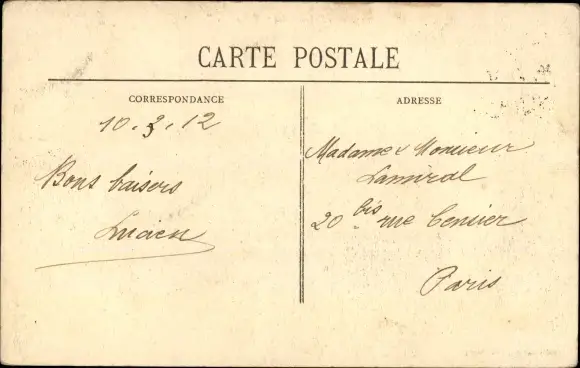 CARTE POSTALE
CORRESPONDANCE
10.3.12
Bons baisers
Lucien
ADRESSE
Madame & Monsieur
20 bis rue Censier
Paris